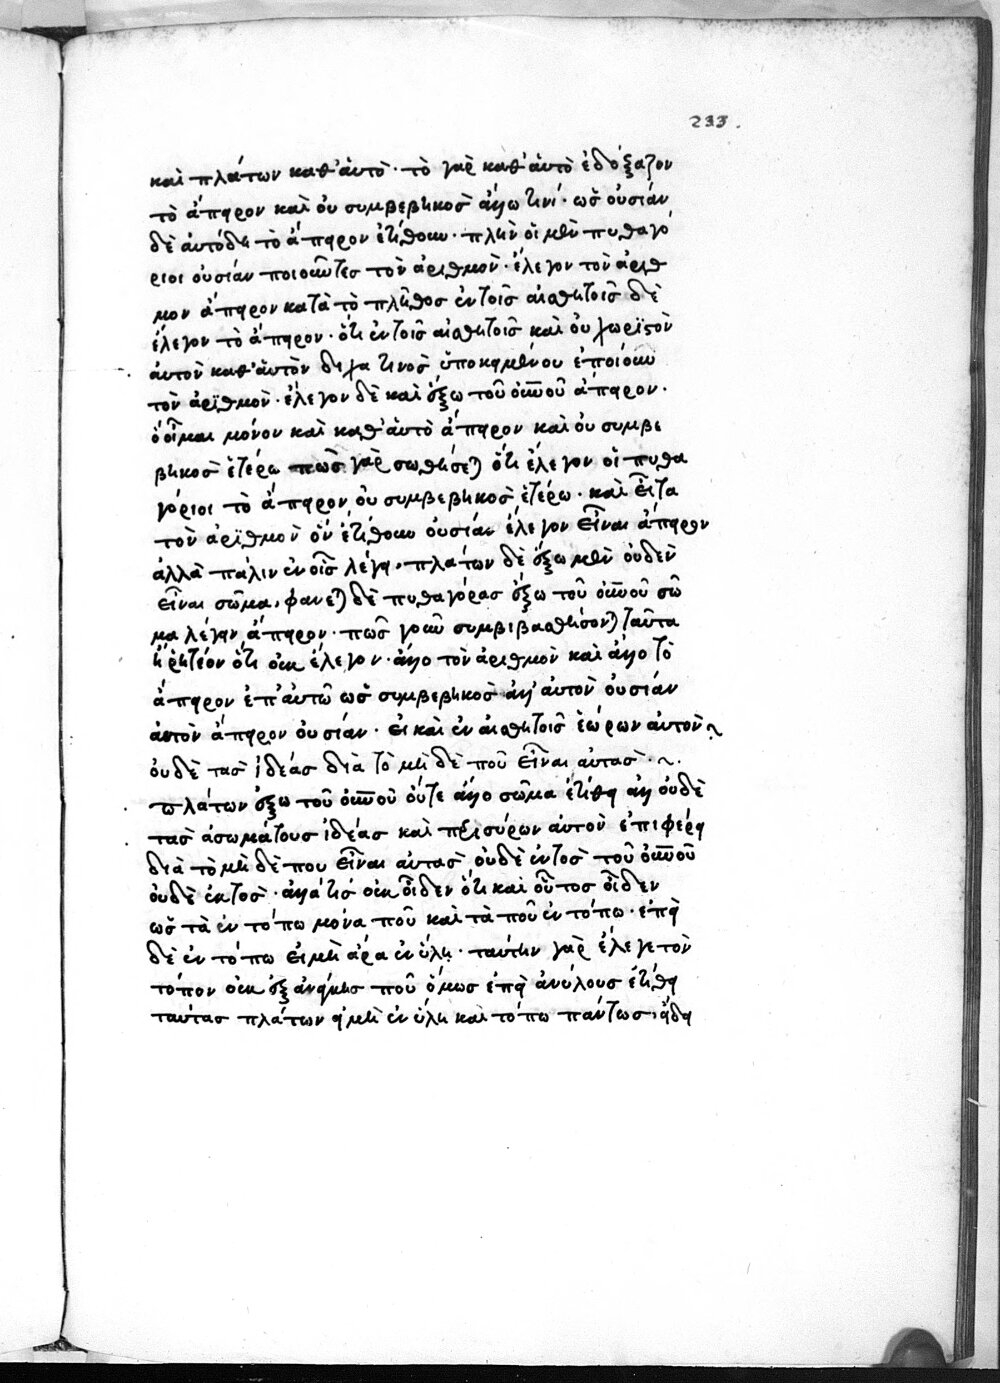 233.
καὶ πλάτων καθ' ἁυτὸ · τὸ γὰρ καθ' ἁυτὸ ἐδόξαζον
τὸ ἄπειρον καὶ ὀυ συμβεβηκὸσ ἄλλω τινί · ὡσ ὀυσίαν
δὲ ἀυτόδη τὸ ἄπειρον ἐτίθουν · πλὴν οἱ μὲν πυθαγό
ριοι ὀυσίαν ποιοῦντεσ τὸν ἀριθμὸν · ἔλεγον τὸν ἀριθ
μον ἄπειρον κατὰ τὸ πλῆθοσ ἐν τοῖσ αἰσθητοῖσ δὲ
ἔλεγον τὸ ἄπειρον · ὅτι ἐν τοῖσ αἰσθητοῖσ καὶ ὀυ χωρϊστὸν
ἀυτὸν καθ' ἁυτὸν δίχα τινὸσ ὑποκειμένου ἐποίουν
τὸν ἀρϊθμὸν · ἔλεγον δὲ καὶ ἔξω τοῦ ὀυνοῦ ἄπειρον ·
ὃ οἶμαι μόνον καὶ καθ' ἁυτὸ ἄπειρον καὶ ὀυ συμβε
βηκὸσ ἑτέρω πῶσ γὰρ σωθήσεται ὅτι ἔλεγον οἱ πυθα
γόριοι τὸ ἄπειρον ὀυ συμβεβηκὸσ ἑτέρω · καὶ εἶτα
τὸν ἀρϊθμὸν ὃν ἐτίθουν ὀυσίαν ἔλεγον εἶναι ἄπειρον
ἀλλὰ πάλιν ἐν οἷσ λέγει, πλάτων δὲ ἔξω μὲν ὀυδὲν
εἶναι σῶμα, φανεῖται δὲ πυθαγόρασ ἔξω τοῦ ὀυνοῦ σῶ
μα λέγειν ἄπειρον · πῶσ γοῦν συμβιβασθήσονται ταῦτα
ἢ ῥητέον ὅτι ὀυκ ἔλεγον · ἄλλο τὸν ἀριθμὸν καὶ ἄλλο τὸ
ἄπειρον ἐπ' ἀυτῶ ὡσ συμβεβηκὸσ ἀλλ' ἀυτὸν ὀυσίαν
ἀυτὸν ἄπειρον ὀυσίαν · εἰ καὶ ἐν αἰσθητοῖσ ἑώρων ἀυτὸν
ὀυδὲ τασ ἰδέασ διὰ τὸ μὴ δὲ ποῦ εἶναι αὐτασ · ~.
πλάτων ἔξω τοῦ ὀυνοῦ ὄυτε ἄλλο σῶμα ἐτίθει ἀλλ' ὀυδὲ
τασ ἀσωμάτουσ ἰδέασ καὶ πϵρισύρων ἀυτὸν ἐπιφέρει
διὰ τὸ μὴ δὲ που εἶναι ἀυτασ ὀυδὲ ἐντὸσ τοῦ ὀυνοῦ
ὀυδὲ ἐκτὸσ · ἀλλὰ τίσ ὀυκ οἶδεν ὅτι καὶ οὗτοσ οἶδεν
ὡσ τὰ ἐν τόπω μόνα ποῦ καὶ τὰ ποῦ ἐν τόπω · ἐπεὶ
δὲ ἐν τόπω εἰ μὴ ἄρα ἐν ὕλη · ταύτην γὰρ ἔλεγε τὸν
τόπον ὀυκ ἐξ ἀνάγκησ ποῦ ὅμωσ ἐπεὶ ἀνύλουσ ἐτίθει
ταύτασ πλάτων εἰ μὴ ἐν ὕλη καὶ τόπω πάντωσ, ἤδει